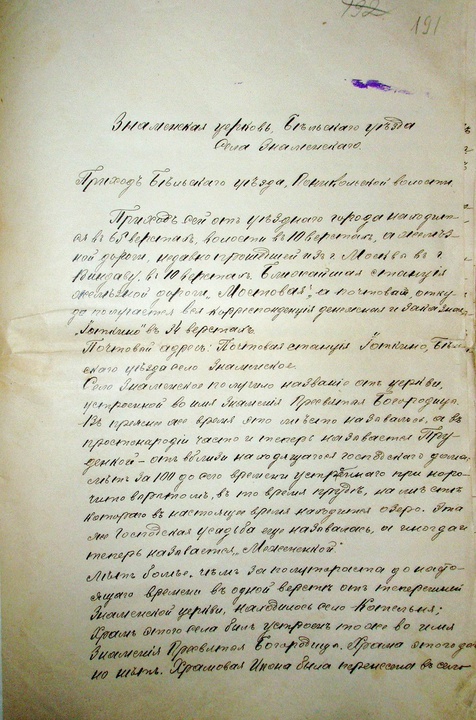 192
191
Знаменская церковь, Бѣльскаго уѣзда
Села Знаменскаго.
Приходъ Бѣльскаго уѣзда, волости.
Приходъ сей отъ уѣзднаго города находит-
ся въ 65 верстахъ, волости въ 10 верстахъ, а желѣз-
ной дороги, недавно прошедшей изъ г. Москвы въ г.
Виндаву, въ 10 верстахъ. Ближайшая станція
желѣзной дороги „Мостовая", а почтовая, отку-
да получается вся корреспонденція денежная и заказная
„Готкино" въ 34 верстахъ.
Почтовый адресъ: Почтовая станція Готкино, Бѣль-
скаго уѣзда село Знаменское.
Село Знаменское получило названіе отъ церкви,
устроенной во имя Знаменія Пресвятыя Богородицы.
Въ прежнее же время это мѣсто называлось, а въ
простонародіи часто и теперь называется Пру-
денкой – отъ вблизи находящагося господскаго дома,
лѣтъ за 100 до сего времени устроеннаго при
въ то время прудѣ, на мѣстѣ
котораго въ настоящее время находится озеро. Эта
же Господская усадьба еще называлась, а иногда и
теперь называется „
Лѣтъ болѣе, чѣмъ за полтораста до насто-
ящаго времени въ одной верстѣ отъ теперешней
Знаменской церкви, находилось село Котельня;
Храмъ этого села былъ устроенъ тоже во имя
Знаменія Пресвятыя Богородицы. Храма этого дав-
но нѣтъ. Храмовая Икона была перенесена въ село